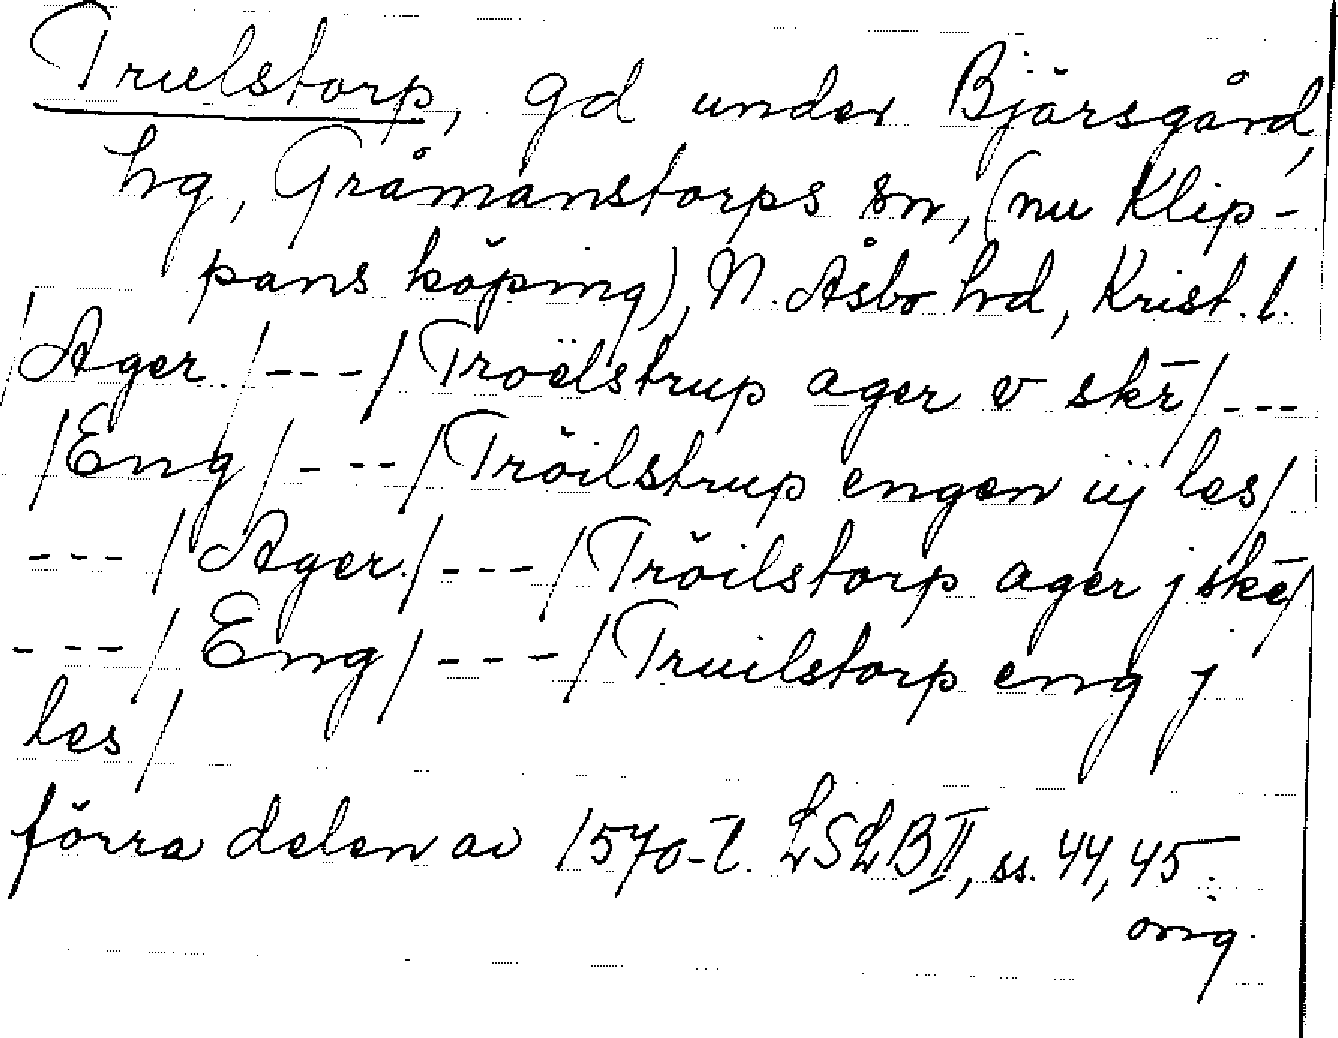 Trulstorp, gd under Bjärsgård,
hg, Gråmanstorps sn, (nu Klip-
pans köping), N. Åsbo hd, Krist. l.
/Ager/---/Troëlstrup ager v skr̄/---
/Eng/---/Tröilstrup engen iij les/
---/Ager/---/Tröilstorp ager j skē/
---/Eng/---/Truilstorp eng j
les/
förra delen av 1570-t. LSLB II, ss. 44, 45.
orig.